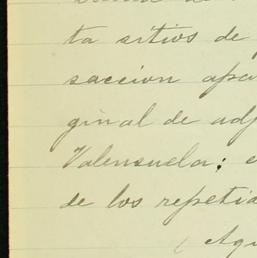 ta sitios de
saccion apa
ginal de adj
Valensuela; e
de los repetid
Aqu